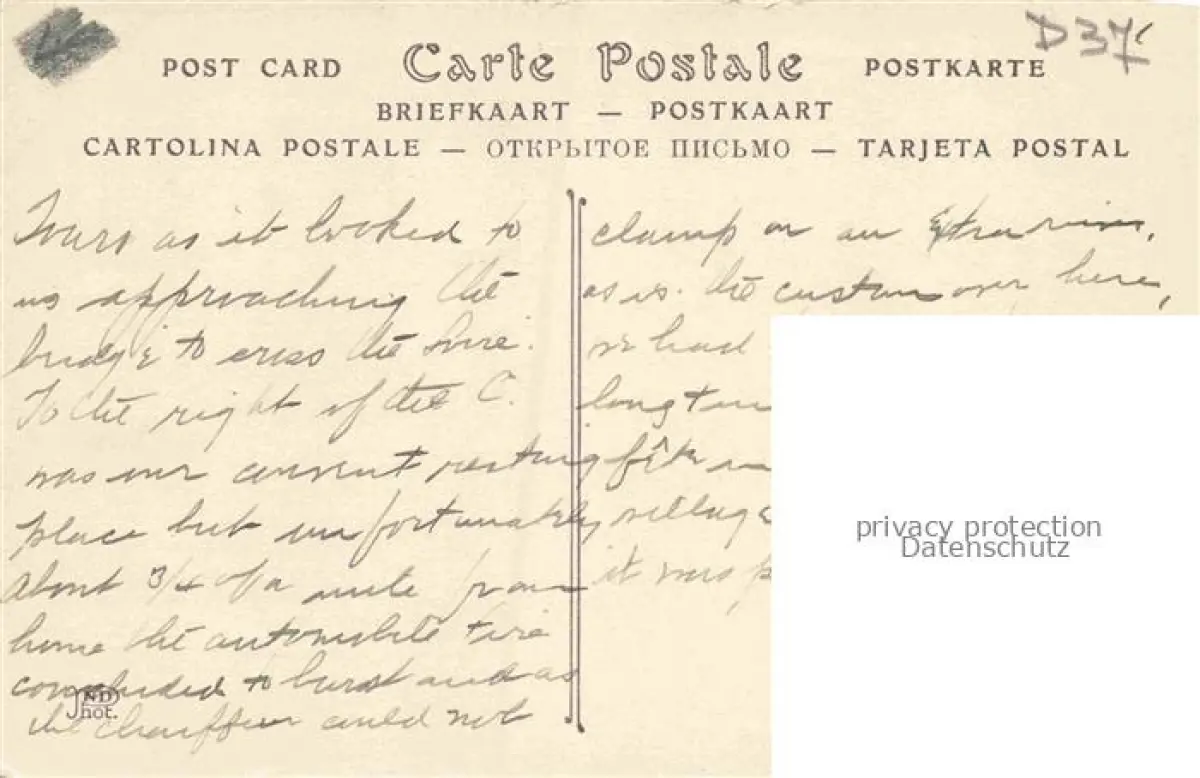 D37
POST CARD Carte Postale POSTKARTE
BRIEFKAART — POSTKAART
CARTOLINA POSTALE — ОТКРЫТОЕ ПИСЬМО — TARJETA POSTAL
Tours as it looked to
us approaching the
bridge to cross the Loire.
To the right of the C.
was our convent resting
place but unfortunately
about 3/4 of a mile from
home the automobile tire
concluded to burst and as
the chauffeur could not
ND
Phot.
clamp on an Extra rim,
as is the custom over here,
we had
long
fête
village
it was p
privacy protection
Datenschutz